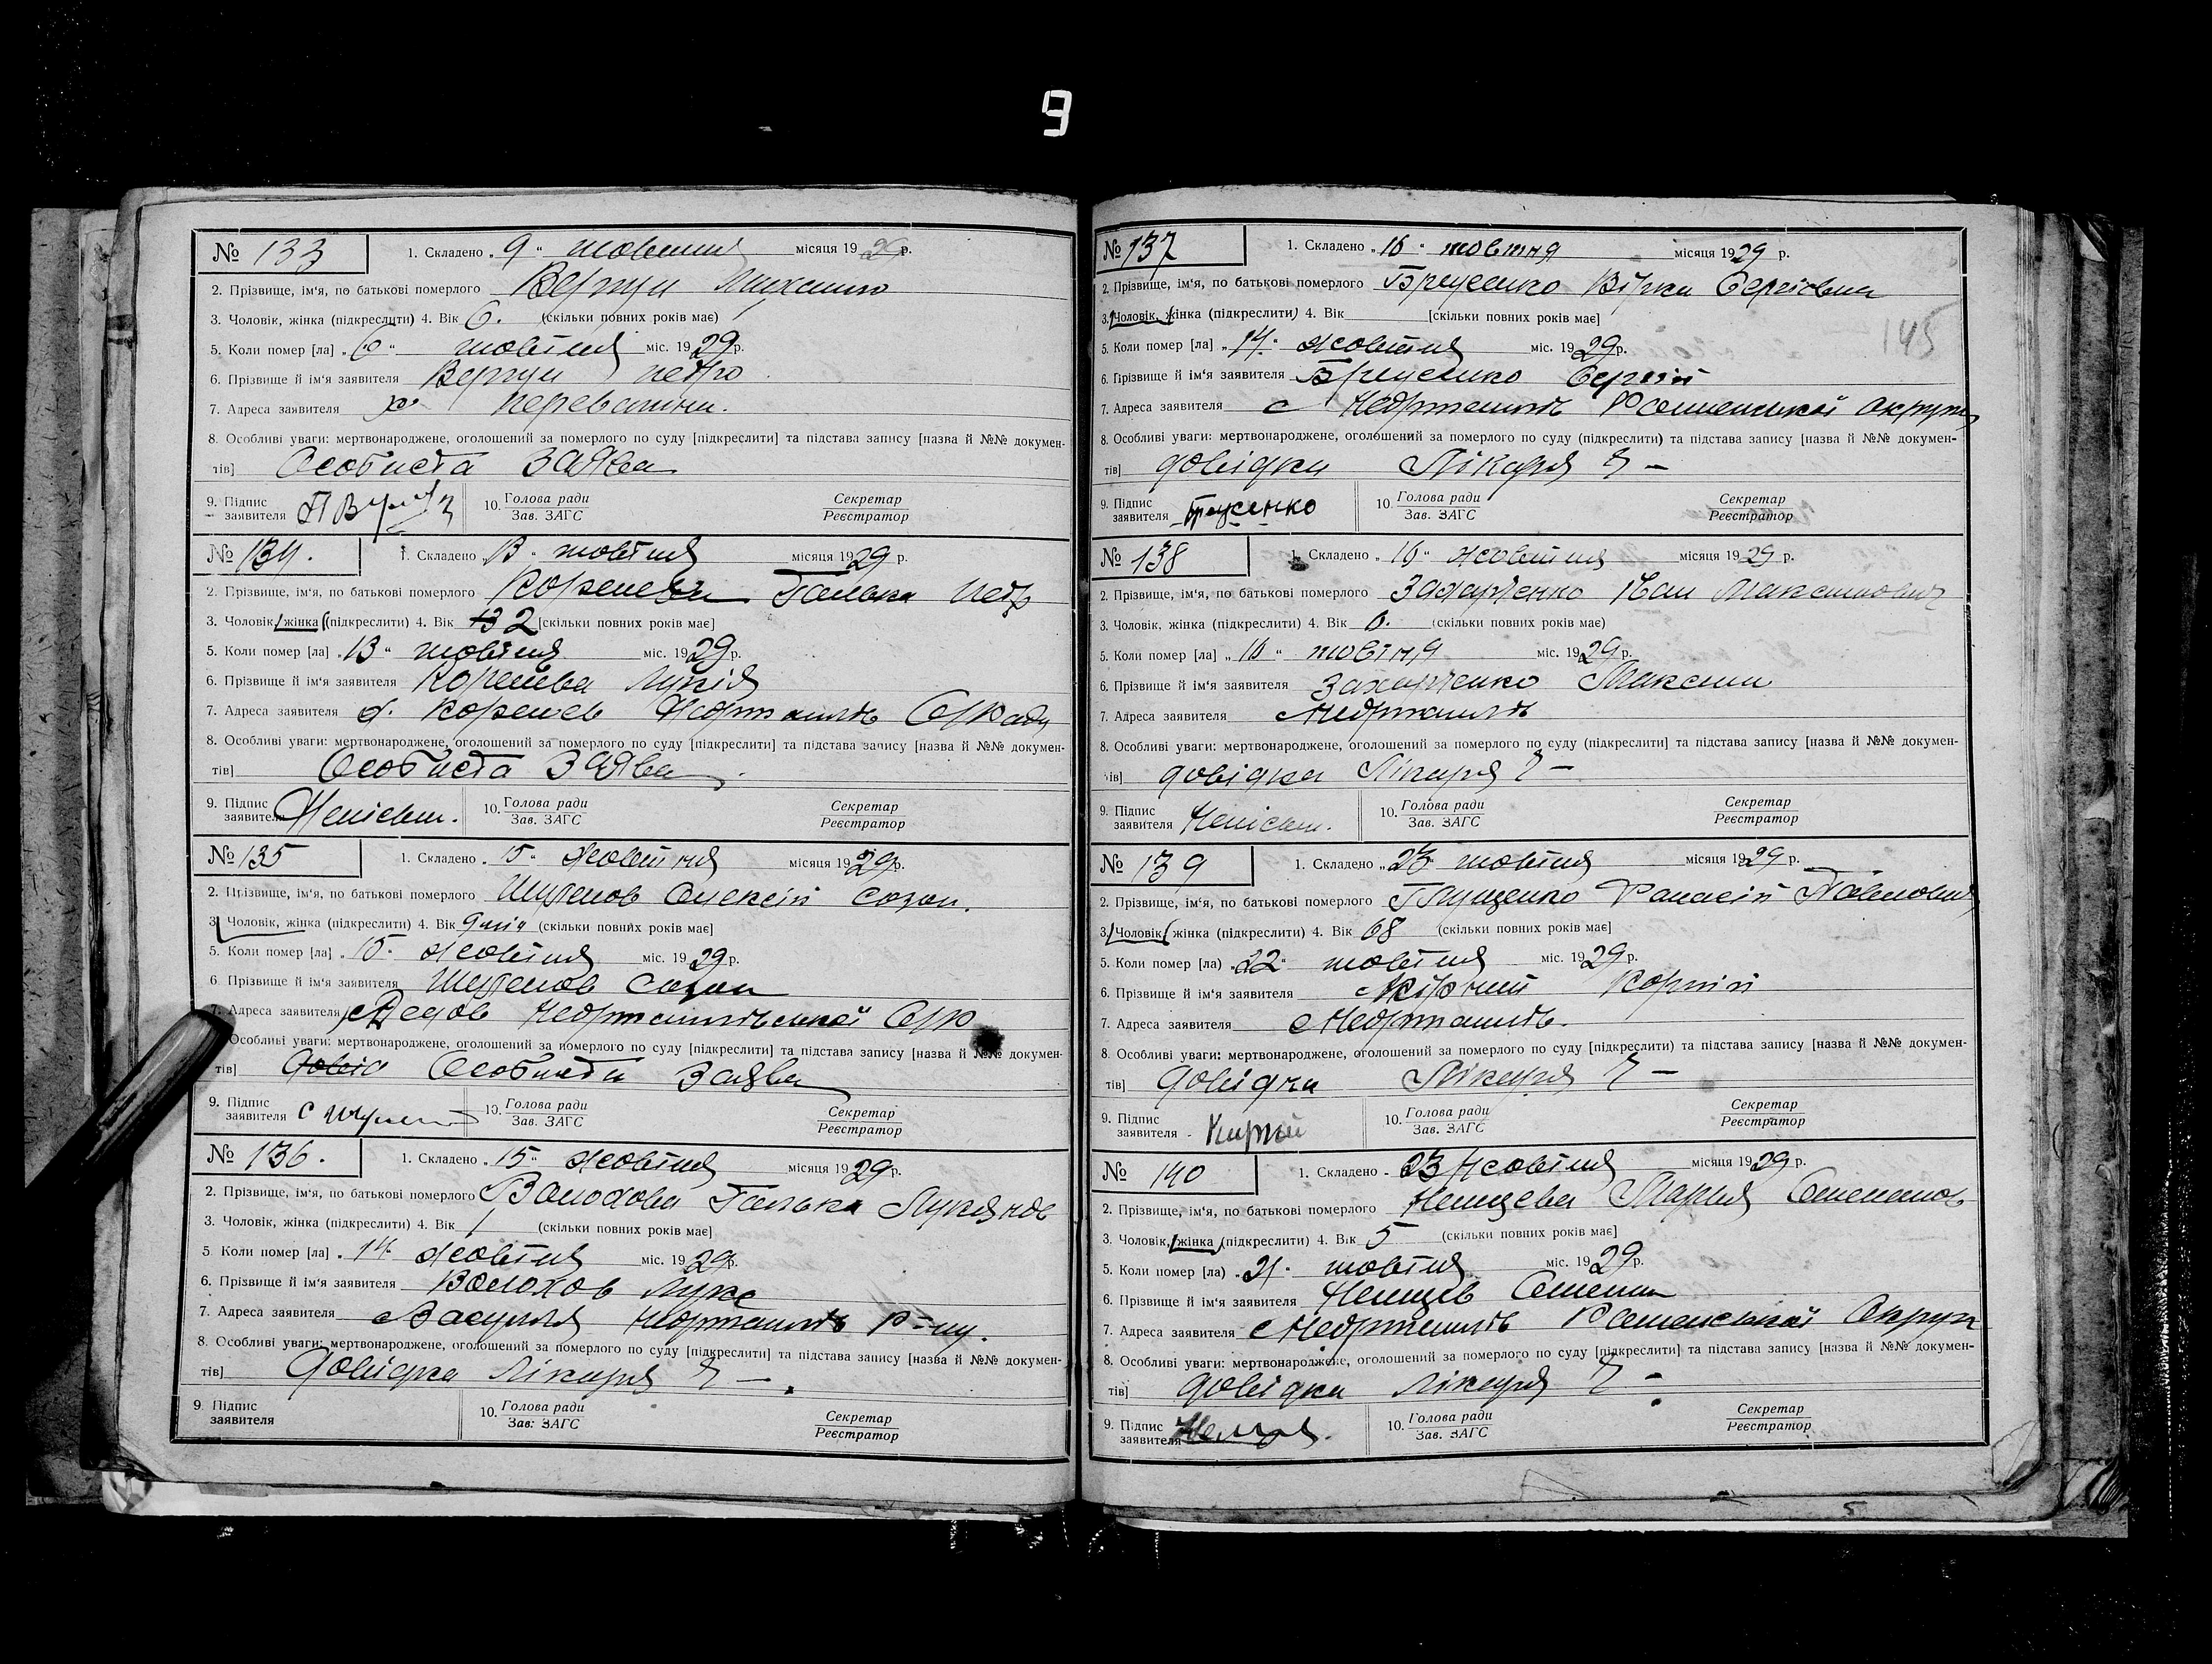 9
№ 133
1. Складено „ 9 “ жовтня місяця 1929 р.
2. Прізвище, ім'я, по батькові померлого Вергун
3. Чоловік, жінка (підкреслити) 4. Вік 6. (скільки повних років має)
5. Коли помер [ла] „ “ жовтня міс. 1929 р.
6. Прізвище й ім'я заявника Вергун Петро
7. Адреса заявителя
8. Особливі уваги: мертвонароджене, оголошений за померлого по суду [підкреслити] та підстава запису [назва й №№ докумен-
тів] Особиста заява
9. Підпис заявителя
10. Голова ради Зав. ЗАГС
Секретар Реєстратор
№ 134.
1. Складено „ 13 “ жовтня місяця 1929 р.
2. Прізвище, ім'я, по батькові померлого Коренева Галька Петр
3. Чоловік, жінка (підкреслити) 4. Вік 2 [скільки повних років має]
5. Коли помер [ла] „ 13 “ жовтня міс. 1929 р.
6. Прізвище й ім'я заявителя Коренева Лукія
7. Адреса заявителя х. Коренев
8. Особливі уваги: мертвонароджене, оголошений за померлого по суду [підкреслити] та підстава запису [назва й №№ докумен-
тів] Особиста заява
9. Підпис заявителя Неписьм.
10. Голова ради Зав. ЗАГС
Секретар Реєстратор
№ 135
1. Складено „ 15 “ жовтня місяця 1929 р.
2. Прізвище, ім'я, по батькові померлого Олексій Созон.
3. Чоловік, жінка (підкреслити) 4. Вік (скільки повних років має]
5. Коли помер [ла] „ 15 “ жовтня міс. 1929 р.
6. Прізвище й ім'я заявителя Созон
7. Адреса заявителя
8. Особливі уваги: мертвонароджене, оголошений за померлого по суду [підкреслити] та підстава запису [назва й №№ докумен-
тів] Особиста заява
9. Підпис заявителя
10. Голова ради Зав. ЗАГС
Секретар Реєстратор
№ 136.
1. Складено „ 15 “ жовтня місяця 1929 р.
2. Прізвище, ім'я, по батькові померлого Волохова Галька
3. Чоловік, жінка (підкреслити) 4. Вік 1 (скільки повних років має]
5. Коли помер [ла] „ 14 “ жовтня міс. 1929 р.
6. Прізвище й ім'я заявителя Волохов Лука
7. Адреса заявителя
8. Особливі уваги: мертвонароджене, оголошений за померлого по суду [підкреслити] та підстава запису [назва й №№ докумен-
тів] Довідка лікаря Ч —.
9. Підпис заявителя
10. Голова ради Зав. ЗАГС
Секретар Реєстратор
№ 137
1. Складено „ 16 “ жовтня місяця 1929 р.
2. Прізвище, ім'я, по батькові померлого Вірка Сергієвна
3. Чоловік, жінка (підкреслити) 4. Вік [скільки повних років має]
145
5. Коли помер [ла] „ 14 “ жовтня міс. 1929 р.
6. Прізвище й ім'я заявителя Сергій
7. Адреса заявителя с Недригайлів Роменської округи
8. Особливі уваги: мертвонароджене, оголошений за померлого по суду (підкреслити) та підстава запису [назва й №№ докумен-
тів] довідка Лікаря Ч —
9. Підпис заявителя
10. Голова ради Зав. ЗАГС
Секретар Реєстратор
№ 138
1. Складено „ 16 “ жовтня місяця 1929 р.
2. Прізвище, ім'я, по батькові померлого Захарченко Іван Максимович
3. Чоловік, жінка (підкреслити) 4. Вік 0. (скільки повних років має)
5. Коли помер [ла] „ 16 “ жовтня міс. 1929 р.
6. Прізвище й ім'я заявителя Захарченко Максим
7. Адреса заявителя с Недригайлів
8. Особливі уваги: мертвонароджене, оголошений за померлого по суду (підкреслити] та підстава запису [назва й №№ докумен-
тів] довідка Лікаря Ч —
9. Підпис заявителя Неписьм.
10. Голова ради Зав. ЗАГС
Секретар Реєстратор
№ 139
1. Складено „ 23 “ жовтня місяця 1929 р.
2. Прізвище, ім'я, по батькові померлого Панасій Павлович
3. Чоловік, жінка (підкреслити) 4. Вік 68 (скільки повних років має]
5. Коли помер [ла) „ 22 “ жовтня міс. 1929 р.
6. Прізвище й ім'я заявителя Корній
7. Адреса заявителя с Недригайлів.
8. Особливі уваги: мертвонароджене, оголошений за померлого по суду [підкреслити) та підстава запису [назва й №№ докумен-
тів] Довідка Лікаря Ч —
9. Підпис заявителя
10. Голова ради Зав. ЗАГС
Секретар Реєстратор
№ 140
1. Складено „ 23 жовтня місяця 1929 р.
2. Прізвище, ім'я, по батькові померлого Немцева Марья
3. Чоловік, жінка (підкреслити) 4. Вік 5 (скільки повних років має]
5. Коли помер [ла) „ 21 “ жовтня міс. 1929 р.
6. Прізвище й ім'я заявителя Немцев
7. Адреса заявителя с Недригайлів Роменської Округи
8. Особливі уваги: мертвонароджене, оголошений за померлого по суду [підкреслити] та підстава запису [назва й №№ докумен-
тів] довідка лікаря Ч —
9. Підпис заявителя
10. Голова ради Зав. ЗАГС
Секретар Реєстратор